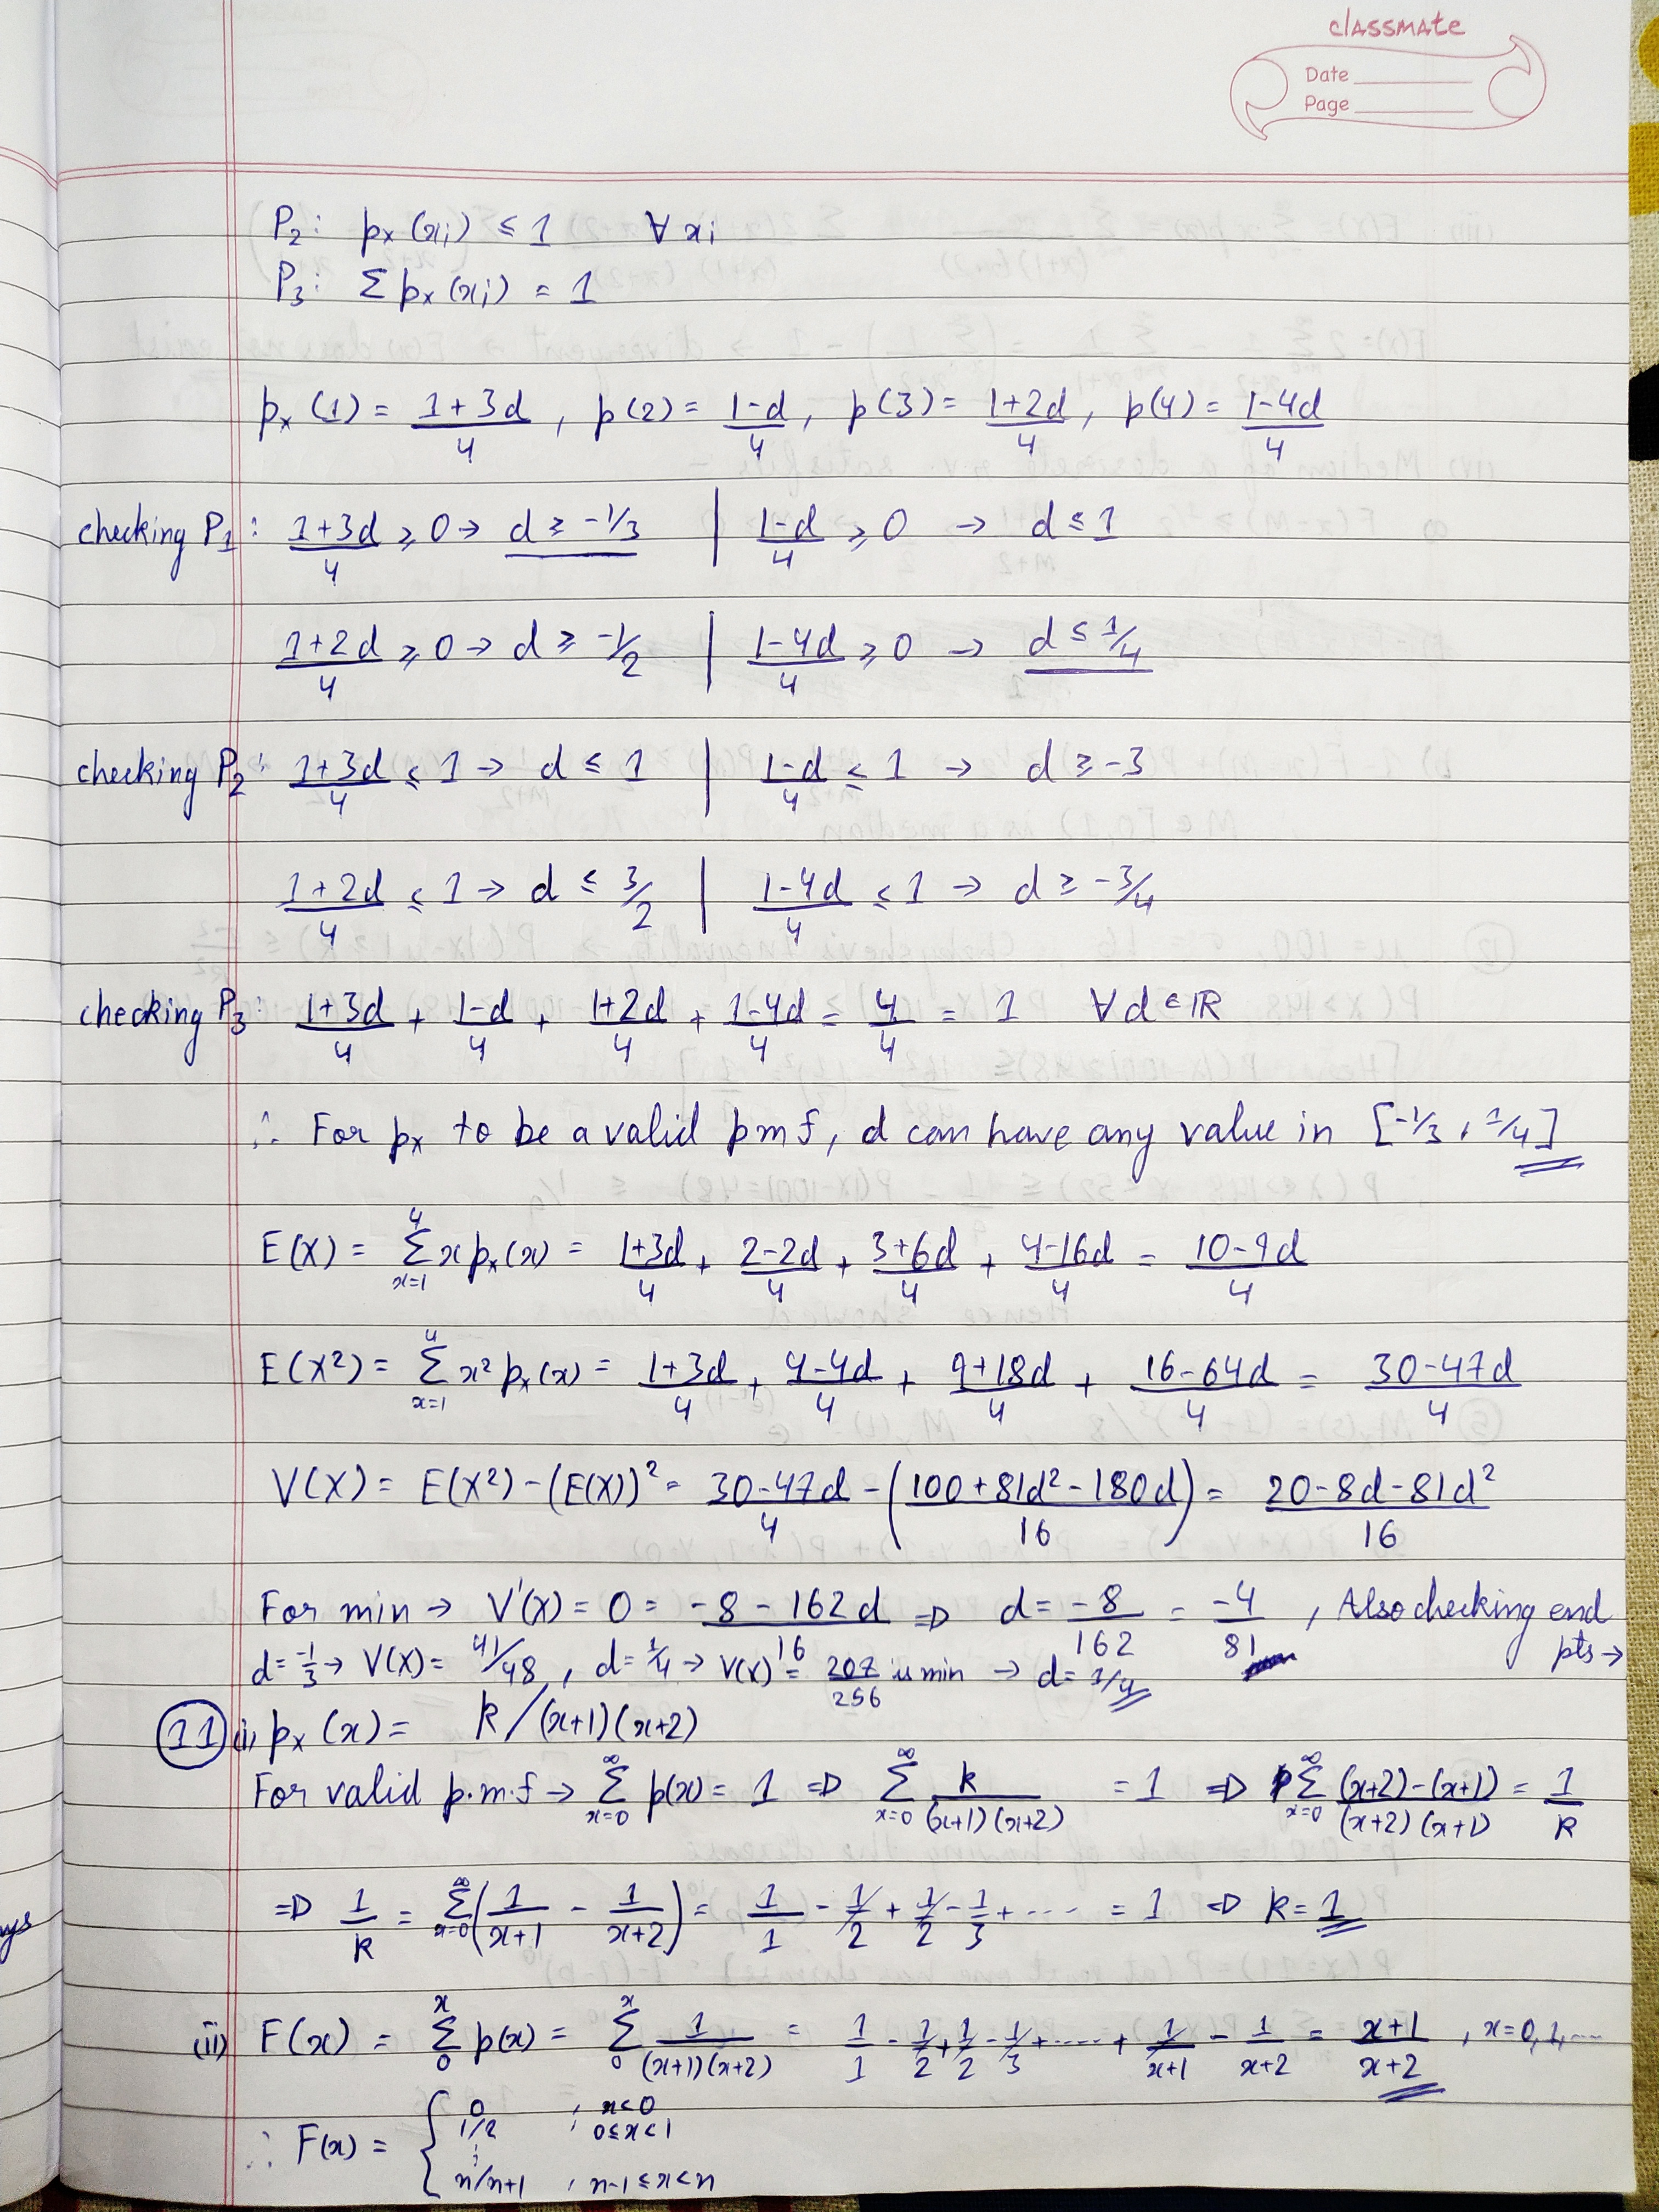 classmate
Date
Page
P₂: pₓ(xᵢ) ≤ 1 ∀ xᵢ
P₃: Σ pₓ(xᵢ) = 1
pₓ(1) = (1+3d)/4, p(2) = (1-d)/4, p(3) = (1+2d)/4, p(4) = (1-4d)/4
checking P₁: (1+3d)/4 ≥ 0 → d ≥ -1/3 | (1-d)/4 ≥ 0 → d ≤ 1
(1+2d)/4 ≥ 0 → d ≥ -1/2 | (1-4d)/4 ≥ 0 → d ≤ 1/4
checking P₂: (1+3d)/4 ≤ 1 → d ≤ 1 | (1-d)/4 ≤ 1 → d ≥ -3
(1+2d)/4 ≤ 1 → d ≤ 3/2 | (1-4d)/4 ≤ 1 → d ≥ -3/4
checking P₃: (1+3d)/4 + (1-d)/4 + (1+2d)/4 + (1-4d)/4 = 4/4 = 1 ∀ d ∈ ℝ
∴ For pₓ to be a valid pmf, d can have any value in [-1/3, 1/4]
E(X) = Σ_{x=1}^{4} x pₓ(x) = (1+3d)/4 + (2-2d)/4 + (3+6d)/4 + (4-16d)/4 = (10-9d)/4
E(X²) = Σ_{x=1}^{4} x² pₓ(x) = (1+3d)/4 + (4-4d)/4 + (9+18d)/4 + (16-64d)/4 = (30-47d)/4
V(X) = E(X²) - (E(X))² = (30-47d)/4 - ((100+81d²-180d)/16) = (20-8d-81d²)/16
For min → V'(X) = 0 = (-8-162d)/16 ⇒ d = -8/162 = -4/81, Also checking end pts →
d = -1/3 → V(X) = 41/48, d = 1/4 → V(X) = 207/256 is min → d = 1/4
11 (i) pₓ(x) = k/(x+1)(x+2)
For valid p.m.f → Σ_{x=0}^{∞} p(x) = 1 ⇒ Σ_{x=0}^{∞} k/(x+1)(x+2) = 1 ⇒ Σ_{x=0}^{∞} ((x+2)-(x+1))/((x+2)(x+1)) = 1/k
⇒ 1/k = Σ_{x=0}^{∞} (1/(x+1) - 1/(x+2)) = 1/1 - 1/2 + 1/2 - 1/3 + ···· = 1 ⇒ k = 1
(ii) F(x) = Σ_{0}^{x} p(x) = Σ_{0}^{x} 1/(x+1)(x+2) = 1/1 - 1/2 + 1/2 - 1/3 + ····· + 1/(x+1) - 1/(x+2) = (x+1)/(x+2), x = 0, 1, ...
∴ F(x) = { 0 , x<0
1/2 , 0≤x<1
⋮
n/n+1 , n-1≤x<n